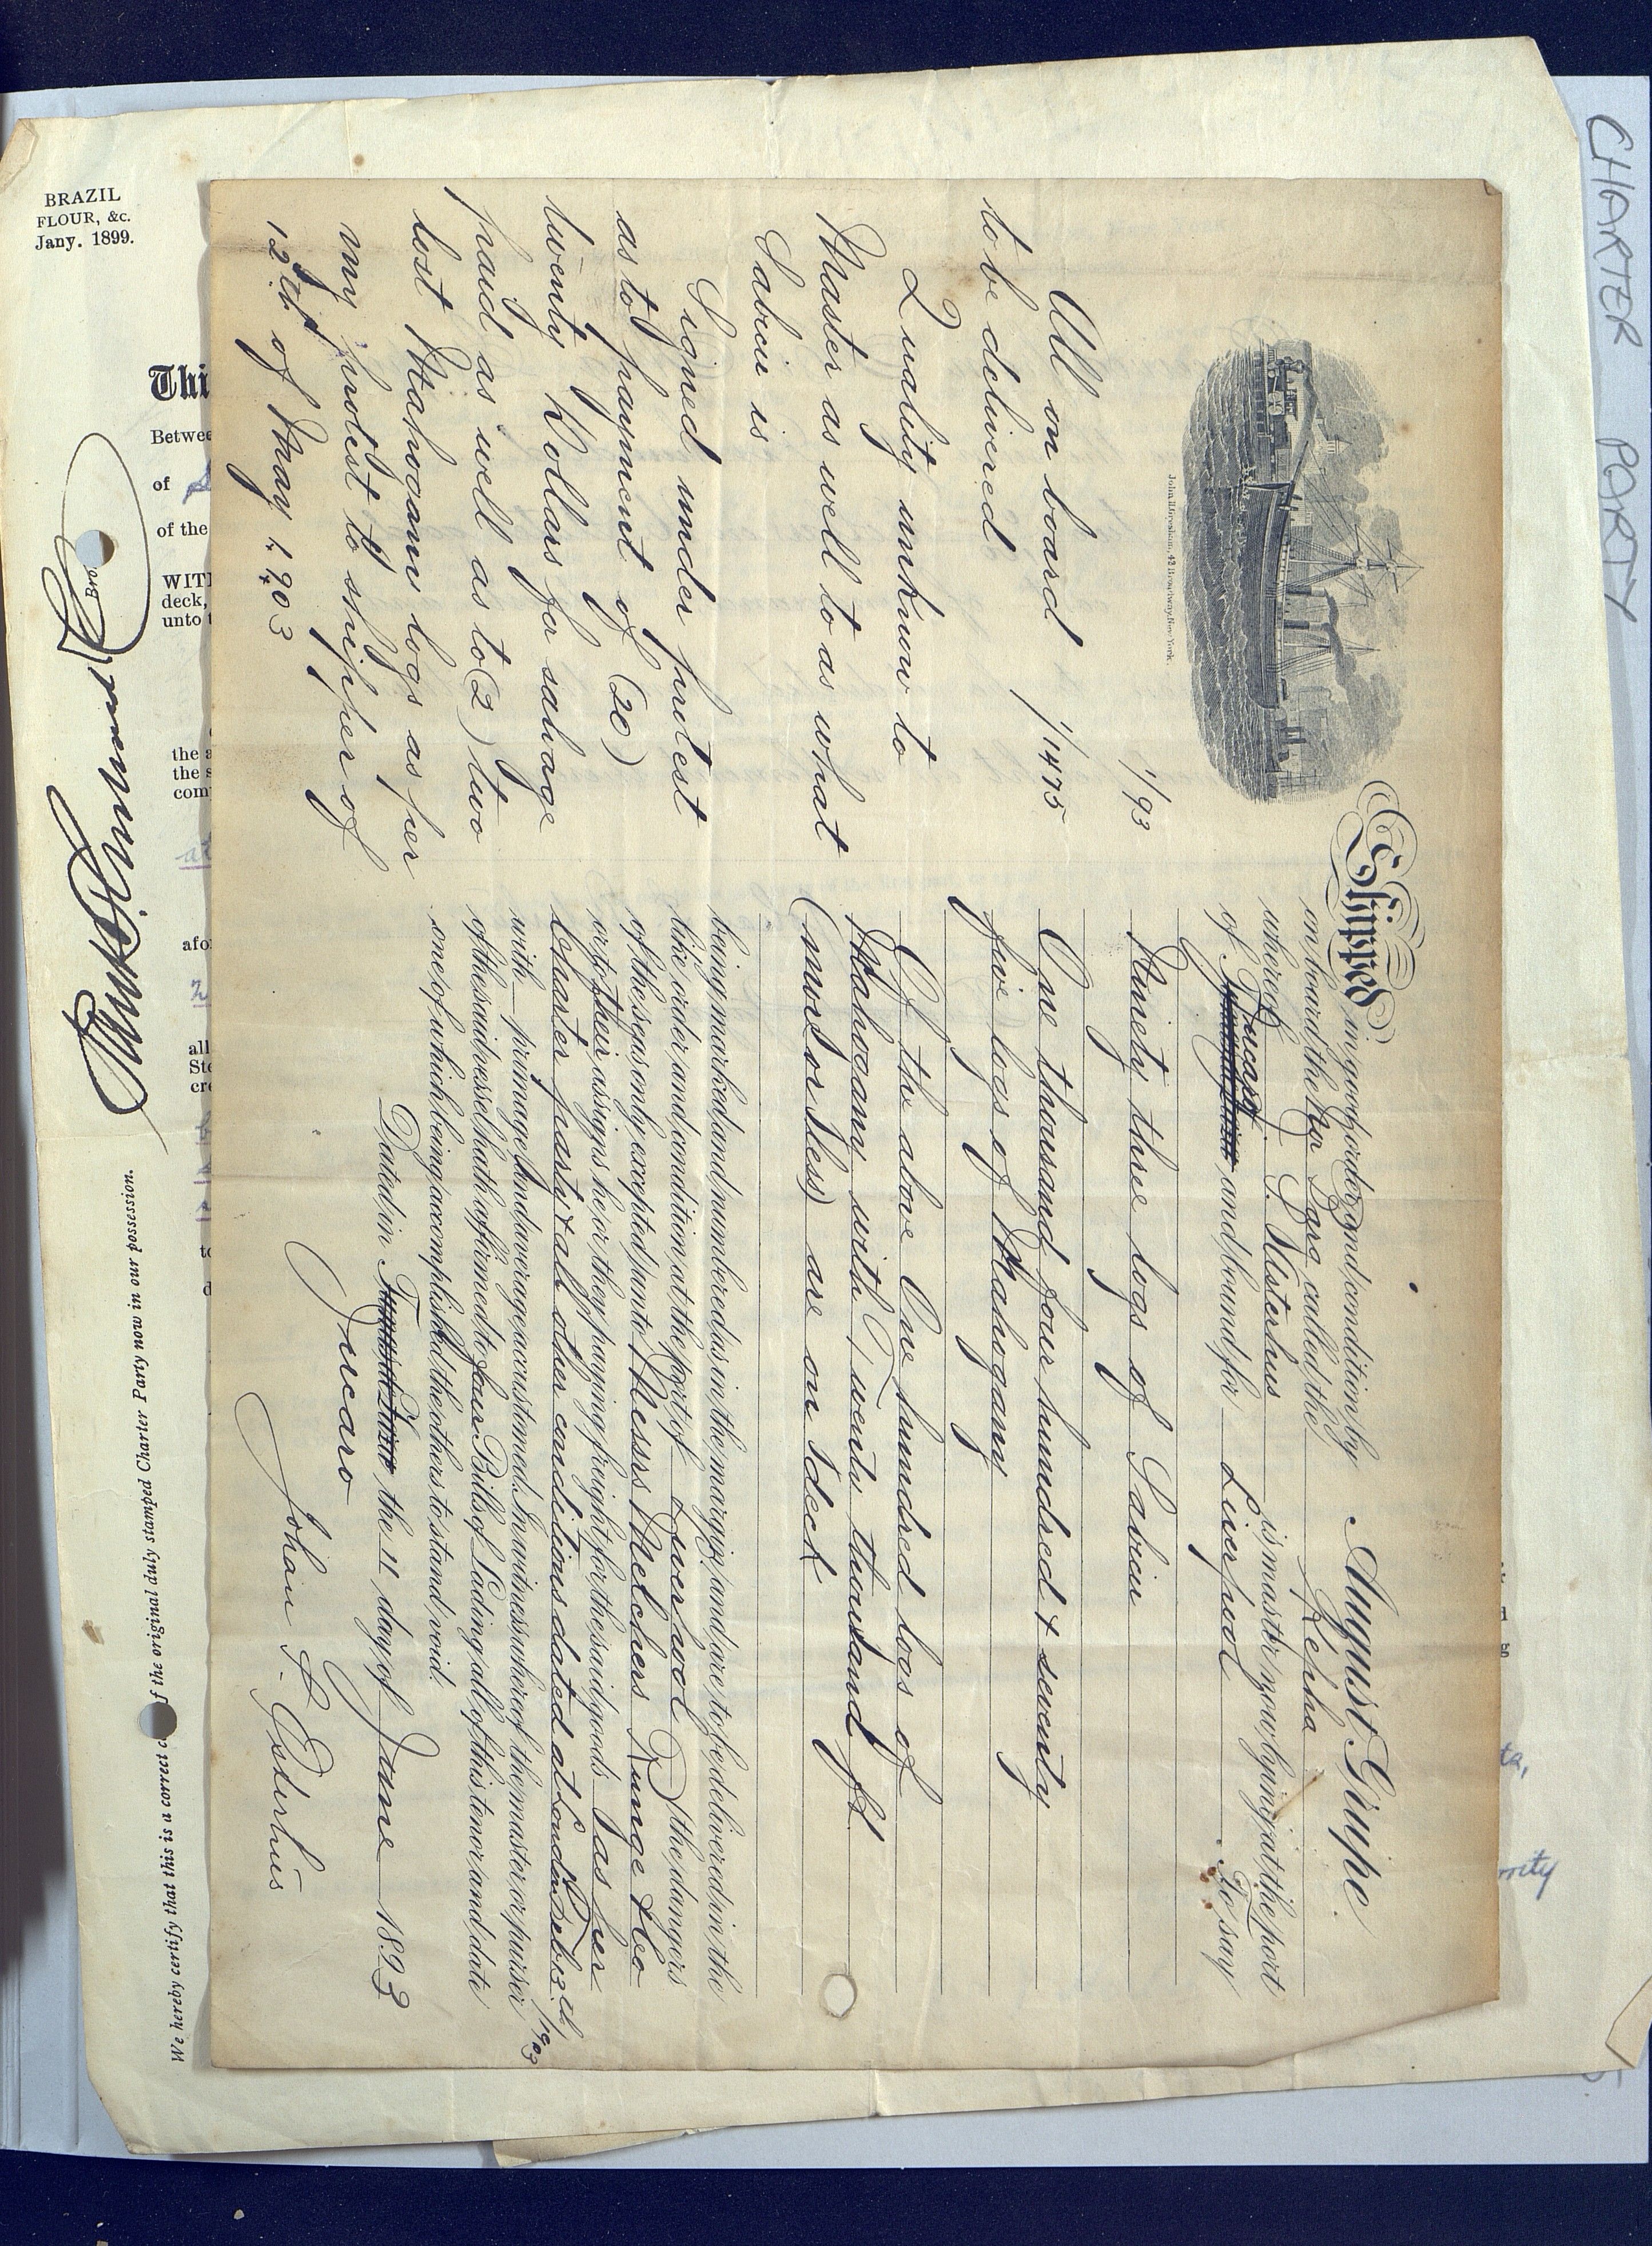 CHARTER PARTY
BRAZIL
FLOUR, &c.
Jany. 1899.
Thi
Betwee
of
of the
WIT
deck,
unto t
the a
the s
com
afor
all
Ste
cre
to
d
We hereby certify that this is a correct c f the original duly stamped Charter Party now in our possession.
John B. Gresham, 42 Broadway, New York.
Shipped in good order and condition by August Giripe.
on board the Nor Barq called the Kepha
whereof J. S. Oisterhus is master now lying at the port
of Jucaro and bound for Liverpool To say
1/93 Ninety three logs of Sabicu
All on board 1/1475 One thousand four hundred & seventy
to be delivered five logs of Mahogany
Quality unknow to Of the above One hundred logs of
Master as well to as what Mahogany with Twenty thousand ft
Sabicu is (more or les) are on deck
being marked and numbered as in the margin, and are to be delivered in the
like order and condition, at the port of Liverpool (the dangers
of the seas only excepted) unto Messrs Melchers Runge & Co
or to their assigns he or they paying freight for the said goods as per
Charter party & all other conditions dated at London Feb 13th 1903
with primage and average accustomed. In witness whereof the master or purser
of the said vessel hath affirmed to four Bills of Lading all of this tenor and date
one of which being accomplished the others to stand void.
Dated in the 11 day of June 1893
Jucaro
Johan S. Osterhus
Signed under protest
as to payment of (20)
twenty Dollars for salvage
paid as well as to (2) two
lost Mahogany logs as per
my protest to shipper of
12th of May 1903